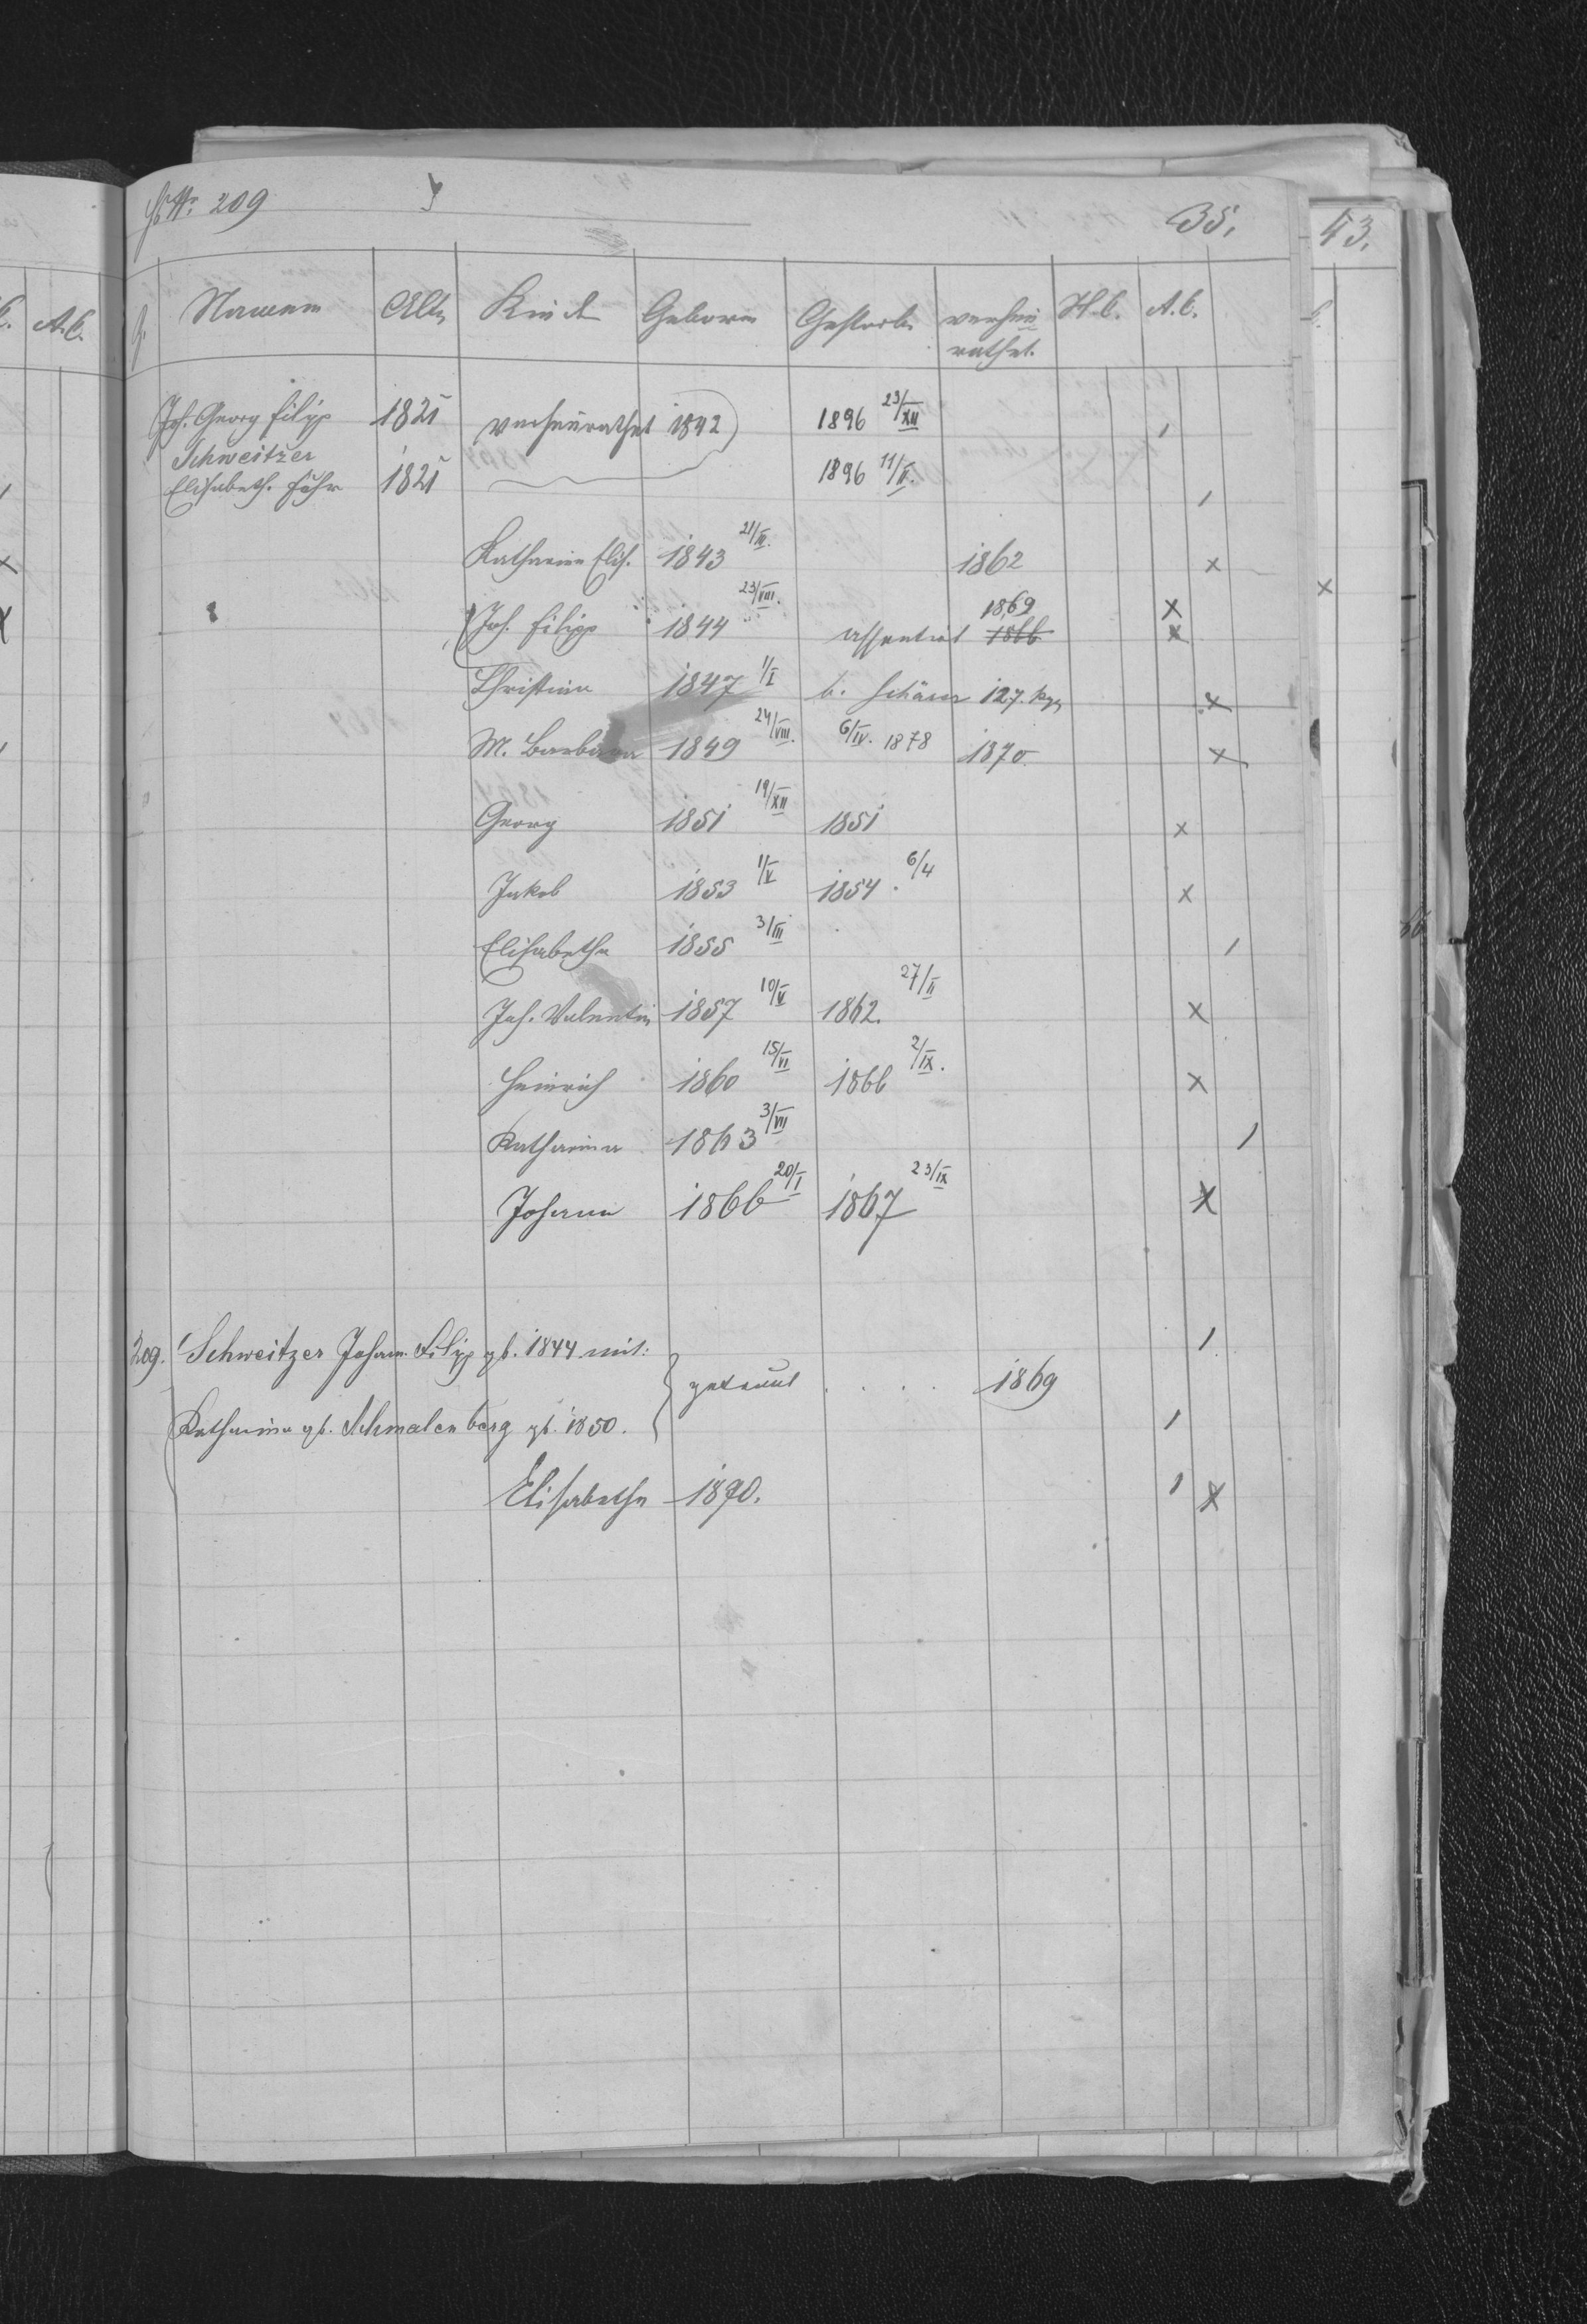 No. 209 35.
Namen Alter Kinder Geboren Gestorben verhei H.C. A.C.
rathet.
Joh. Georg Filipp 1821 verheirathet 1842 1896 23/XII
Schweitzer
Elisabeth. Führ 1821 1896 11/II.
Katharina Elis. 1843 21/III. 1862 x
1869 x
Joh. Filipp 1844 23/VIII. assentirt 1866 x
Christina 1847 1/I b. Schäur 127. x
M. Barbara 1849 24/VIII. 6/IV. 1878 1870 x
Georg 1851 19/XII 1851 x
Jakob 1853 1/V 1854 6/4 x
Elisabetha 1855 3/III
Joh. Valentin 1857 10/V 1862. 27/II x
Heinrich 1860 15/VI 1866 2/IX. x
Katharina 1863 3/VII
Johann 1866 20/I 1867 23/IX x
209. Schweitzer Johann Filipp gb. 1844 mit:
getraut . . . . 1869
Katharina gb. Schmalenberg gb. 1850.
Elisabetha 1870. x
43.
A.C.